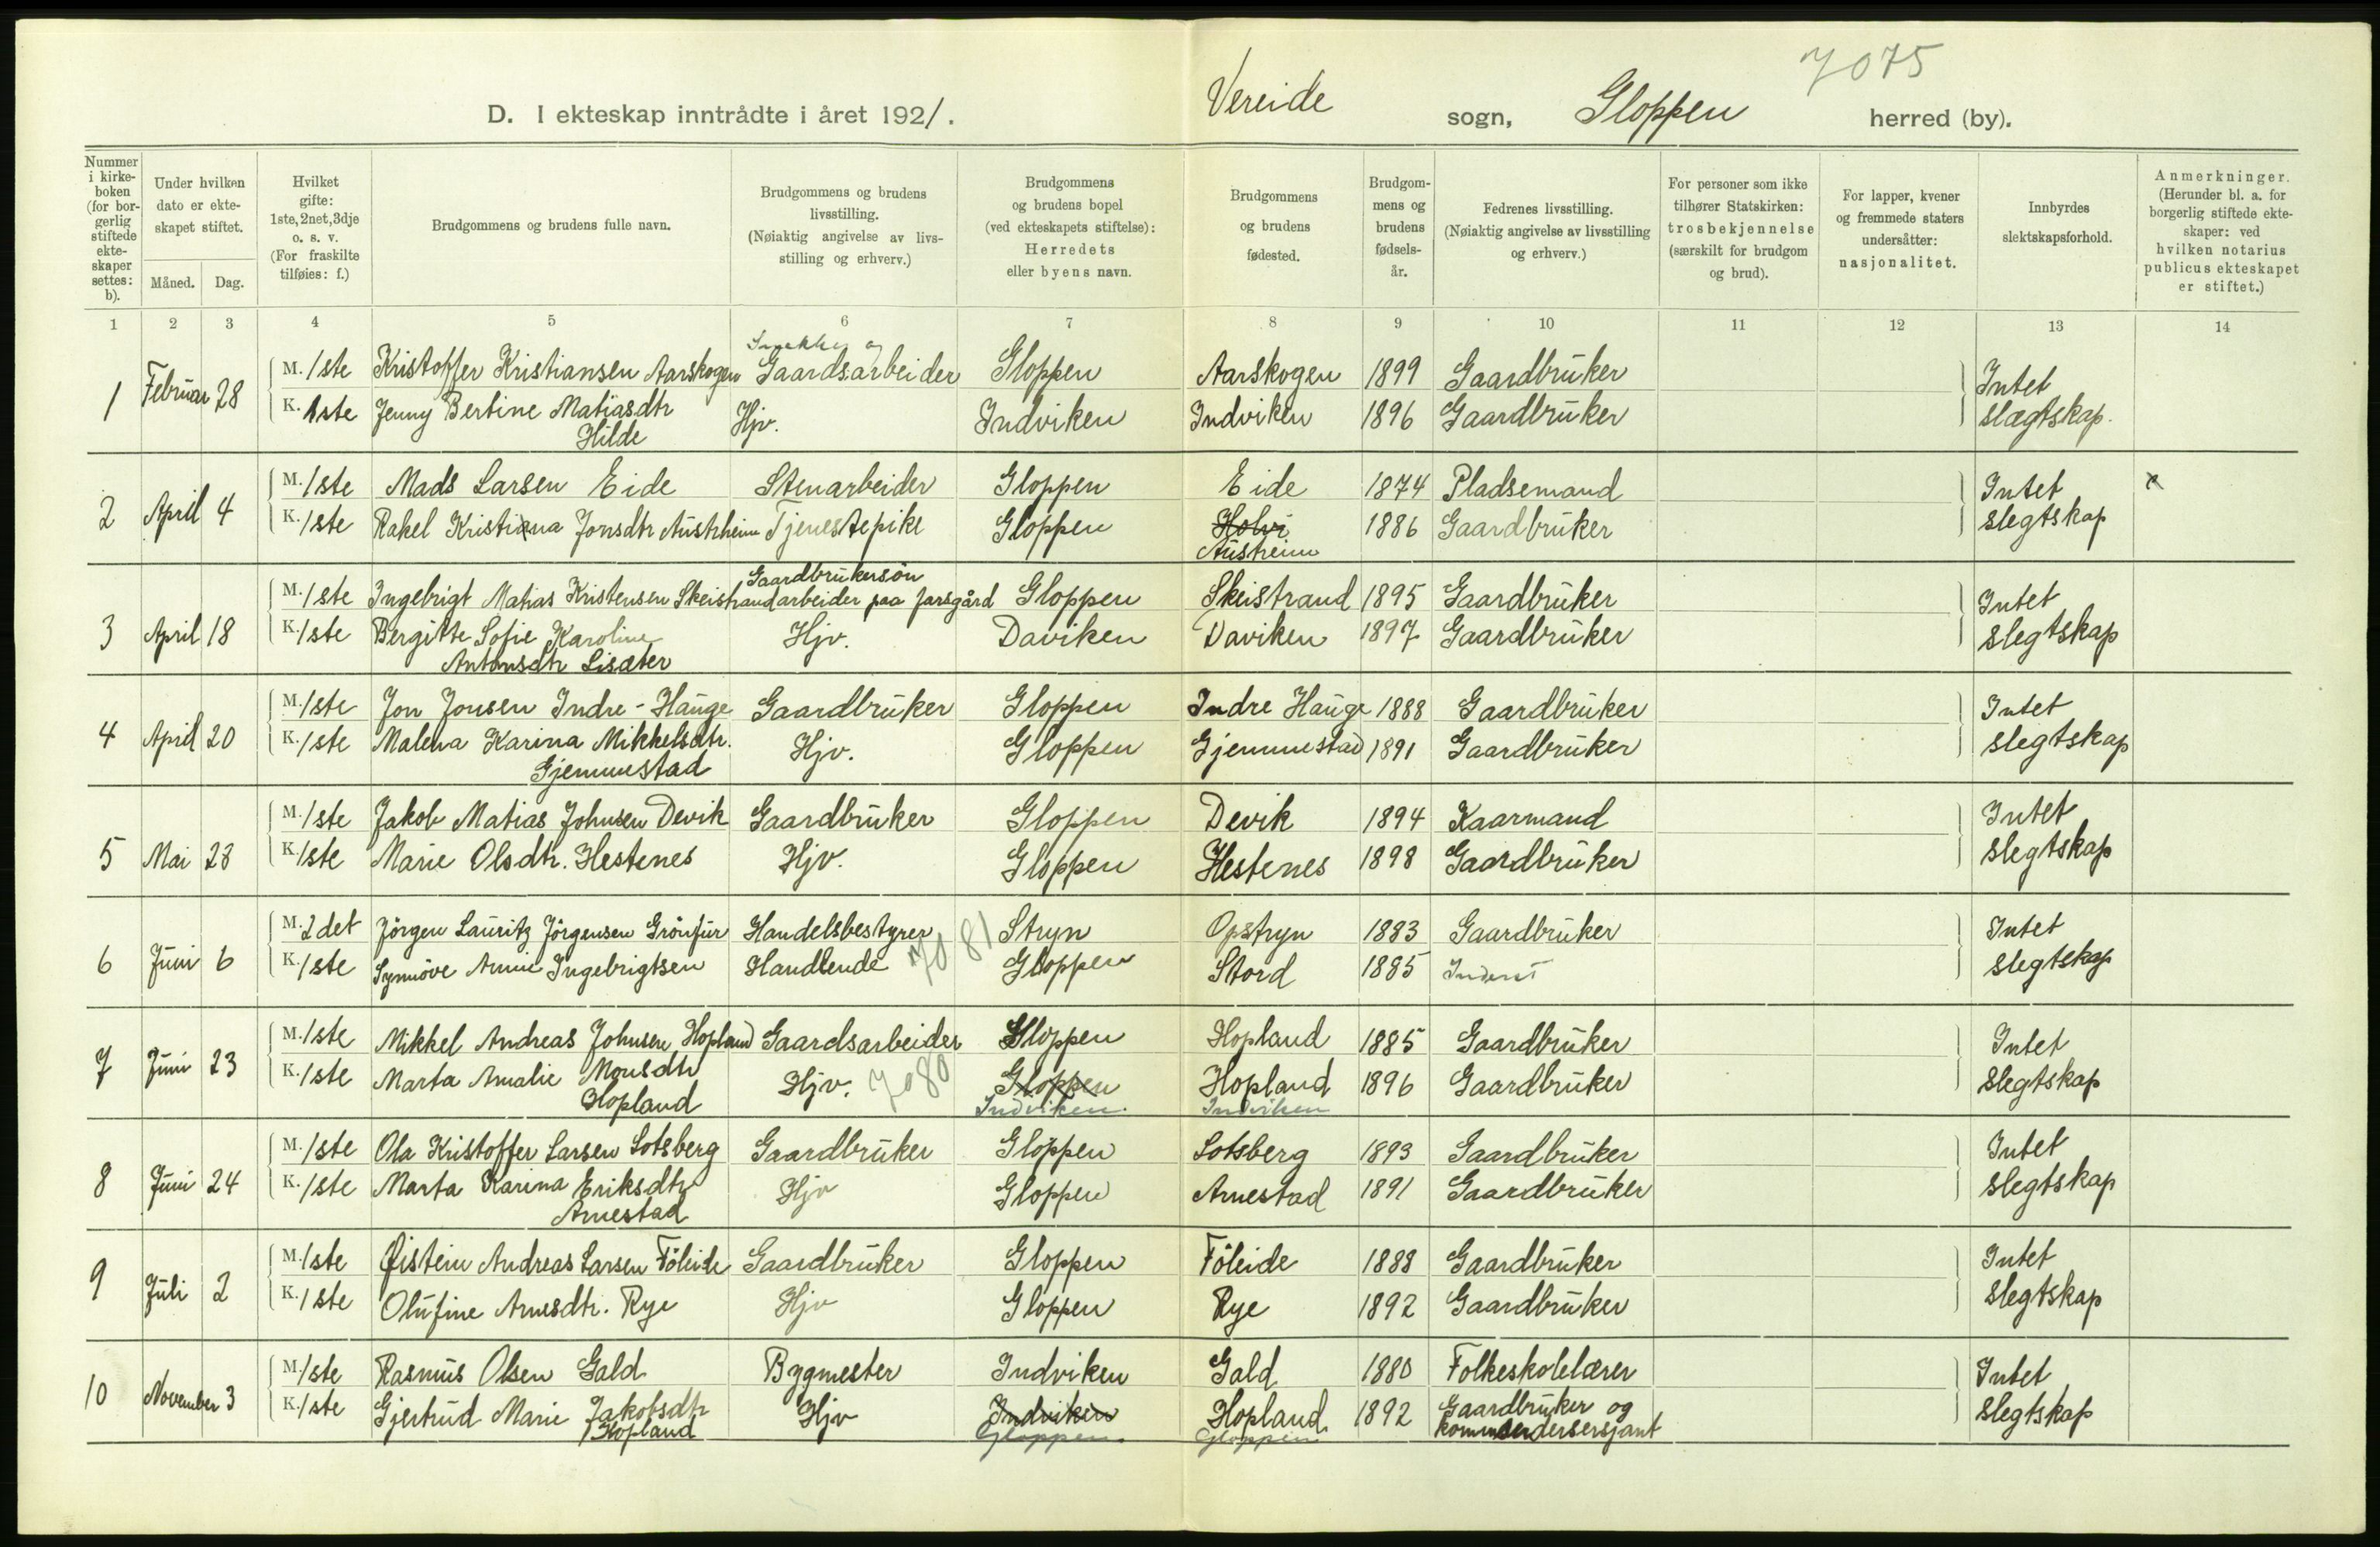 7075
D. I ekteskap inntrådte i året 1921. Vereide sogn, Gloppen herred (by).
Nummer i kirkeboken (for borgerlig stiftede ekteskaper settes: b).
Under hvilken dato er ekteskapet stiftet.
Måned. Dag.
Hvilket gifte: 1ste, 2net, 3dje o. s. v. (For fraskilte tilføies: f.)
Brudgommens og brudens fulle navn.
Brudgommens og brudens livsstilling. (Nøiaktig angivelse av livsstilling og erhverv.)
Brudgommens og brudens bopel (ved ekteskapets stiftelse): Herredets eller byens navn.
Brudgommens og brudens fødested.
Brudgommens og brudens fødselsår.
Fedrenes livsstilling. (Nøiaktig angivelse av livsstilling og erhverv.)
For personer som ikke tilhører Statskirken: trosbekjennelse (særskilt for brudgom og brud).
For lapper, kvener og fremmede staters undersåtter: nasjonalitet.
Innbyrdes slektskapsforhold.
Anmerkninger. (Herunder bl. a. for borgerlig stiftede ekteskaper: ved hvilken notarius publicus ekteskapet er stiftet.)
1 2 3 4 5 6 7 8 9 10 11 12 13 14
1 Februar 28 M. 1ste Kristoffer Kristiansen Aarskogen Snekker og Gaardsarbeider Gloppen Aarskogen 1899 Gaardbruker Intet
K. 1ste Jenny Bertine Matiasdtr Hilde Hjv. Indviken Indviken 1896 Gaardbruker slægtskap.
2 April 4 M. 1ste Mads Larsen Eide Stenarbeider Gloppen Eide 1874 Pladsemand Intet x
K. 1ste Rakel Kristina Jonsdtr Austrheim Tjenestepike Gloppen Holvi Austreim 1886 Gaardbruker slegtskap
3 April 18 M. 1ste Ingebrigt Matias Kristensen Skeistrand Gaardbrukersön arbeider paa farsgård Gloppen Skeistrand 1895 Gaardbruker Intet
K. 1ste Bergitte Sofie Karoline Antonsdtr Lisæter Hjv. Daviken Daviken 1897 Gaardbruker slegtskap
4 April 20 M. 1ste Jon Jonsen Indre-Hauge Gaardbruker Gloppen Indre Hauge 1888 Gaardbruker Intet
K. 1ste Malena Karina Mikkelsdtr. Gjemmestad Hjv. Gloppen Gjemmestad 1891 Gaardbruker slegtskap
5 Mai 28 M. 1ste Jakob Matias Johnsen Devik Gaardbruker Gloppen Devik 1894 Kaarmand Intet
K. 1ste Marie Olsdtr. Hestenes Hjv. Gloppen Hestenes 1898 Gaardbruker slegtskap
6 Juni 6 M. 2det Jörgen Lauritz Jörgensen Grönfur Handelsbestyrer 7081 Stryn Opstryn 1883 Gaardbruker Intet
K. 1ste Synnöve Annie Ingebrigtsen Handlende Gloppen Stord 1885 slegtskap
7 Juni 23 M. 1ste Mikkel Andreas Johnsen Hopland Gaardsarbeider Gloppen Hopland 1885 Gaardbruker Intet
K. 1ste Marta Amalie Monsdtr Hopland Hjv. 7080 Gloppen Indviken. Hopland Indviken 1896 Gaardbruker slegtskap
8 Juni 24 M. 1ste Ola Kristoffer Larsen Lotsberg Gaardbruker Gloppen Lotsberg 1893 Gaardbruker Intet
K. 1ste Marta Karina Eriksdtr Arnestad Hjv Gloppen Arnestad 1891 Gaardbruker slegtskap
9 Juli 2 M. 1ste Øistein Andreas Larsen Föleide Gaardbruker Gloppen Föleide 1888 Gaardbruker Intet
K. 1ste Olufine Arnesdtr. Rye Hjv Gloppen Rye 1892 Gaardbruker slegtskap
10 November 3 M. 1ste Rasmus Olsen Gald Byggmester Indviken Gald 1880 Folkeskolelærer Intet
K. 1ste Gjertrud Marie Jakobsdtr Hopland Hjv Indviken Gloppen. Hopland Gloppen 1892 Gaardbruker og kommandersersjant slegtskap